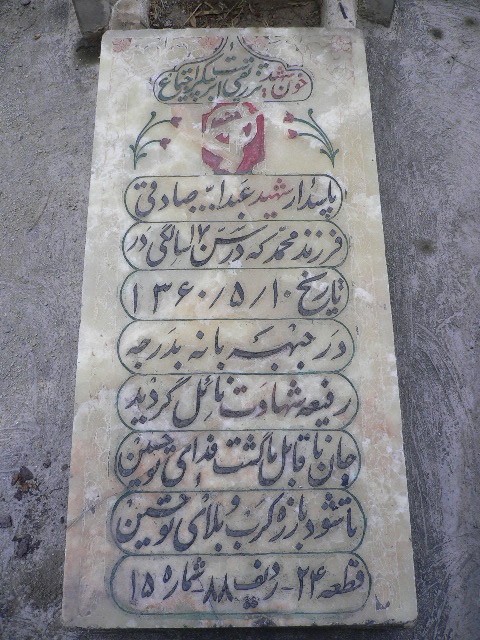 خون شهید
پاسدار شهید عبدا... صادقی
فرزند محمد که در سن ۲۱ سالگی در
تاریخ ۱۳۶۰/۵/۱۰
در جبهه بانه بدرجه
رفیعه شهادت نائل گردید
جان ناقابل ما گشت فدای تو حسین
تا شود بارزه کرب و بلای تو حسین
قطعه ۲۴ - ردیف ۸۸ شماره ۱۵